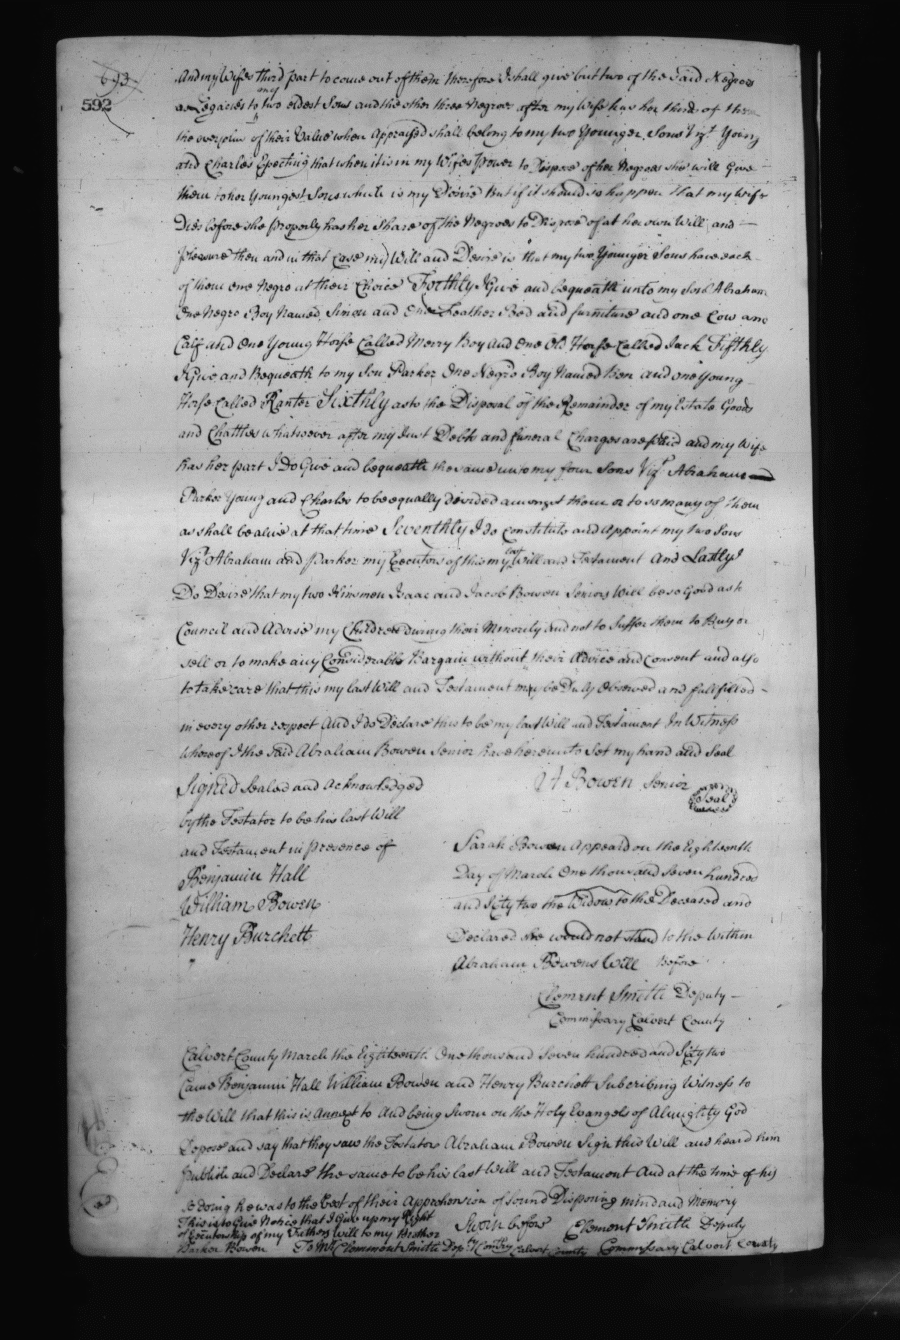 693
592
And my Wifes third part to come out of them therefore I shall give but two of the said Negroes
as Legacies to my two eldest Sons and the other three Negroes after my Wife has her third of the
the overplus of their Value when Appraised shall belong to my two Younger Sons Vizt. Young
and Charles Expecting that when it is in my Wifes Power to Dispose of her Negroes she will Give
them to her Youngest Sons which is my Desire But if it should so happen that my wife
Dies before she properly has her Share of the Negroes to Dispose of at her own Will and
pleasure then and in that Case my Will and Desire is that my two Younger Sons have each
of them one Negro at their Choice Forthly I Give and bequeath unto my Son Abraham
One Negro Boy Named Simon and One Feather Bed and furniture and one Cow and
Calf and One Young Horse Called Merry Boy and One Old Horse Called Jack Fifthly
I give and Bequeath to my Son Parker One Negro Boy Named Ben and one Young
Horse Called Ranter Sixthly as to the Disposal of the Remainder of my Estate Goods
and Chattles whatsoever after my Just Debts and funeral Charges are paid and my Wife
has her part I do Give and bequeath the same unto my four Sons Vizt Abraham
Parker Young and Charles to be equally devided amongst them or to so many of them
as shall be alive at that time Seventhly I do Constitute and Appoint my two Sons
Vizt Abraham and Parker my Executors of this my last Will and Testament And Lastly I
Do Desire that my two Kinsmen Isaac and Jacob Bowen Seniors Will be so Good as to
Council and Advise my Children during their Minority and not to Suffer them to Buy or
sell or to make any Considerable Bargain without their Advice and Consent and also
to take care that this my last Will and Testament may be Duly Observed and fulfilled
in every other respect And I do Declare this to be my last Will and Testament In Witness
whereof I the said Abraham Bowen Senior have hereunto Set my hand and Seal
Signed Sealed and Acknowledged
by the Testator to be his last Will
and Testament in presence of
Benjamin Hall
William Bowen
Henry Burchett
A Bowen Senior
Seal
Sarah Bowen Appeard on the Eighteenth
Day of March One thousand seven hundred
and Sixty two the Widow to the Deceased and
Declared she would not stand to the Within
Abraham Bowens Will Before
Clement Smith Deputy
Commissary Calvert County
Calvert County March the Eighteenth One thousand Seven hundred and Sixty two
Came Benjamin Hall William Bowen and Henry Burchett Subscribing Witness to
the Will that this is Annext to And being Sworn on the Holy Evangels of Almighty God
Depose and say that they saw the Testator Abraham Bowen Sign this Will and heard him
publish and Declare the same to be his last Will and Testament And at the time of his
so doing he was to the best of their Apprehension of sound Disposing mind and Memory
Sworn before Clement Smith Deputy
Commissary Calvert County
This is to Give Notice that I Give up my Right
of Executorship of my Fathers Will to my Brother
Parker Bowen To Mr. Clemment Smith Dep.ty Comsry Calvert County